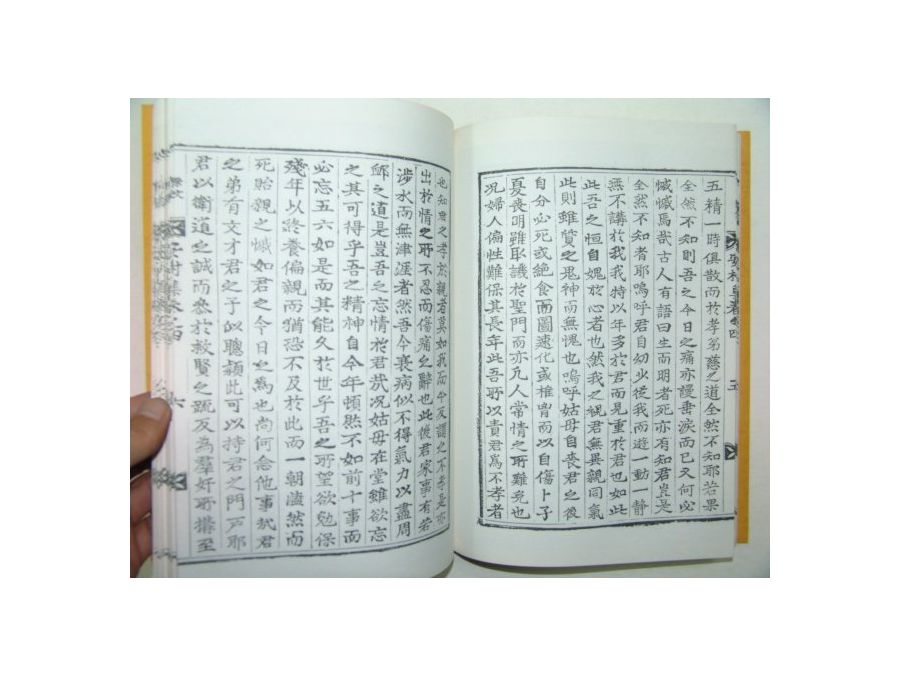 五精一時俱散而於孝弟慈之道全然不知耶若果
全然不知則吾之今日之痛亦謾垂淚而已又何必
慽慽焉哉古人有語曰生而明者死亦有知君豈是
全然不知者耶嗚呼君自幼少從我而遊一動一靜
無不講於我我特以年多於君而見重於君也如此
此吾之恒自愧於心者也然我之視君無異親同氣
此則雖質之鬼神而無愧也嗚呼姑母自喪君之後
自分必死或絶食而圖速化或椎胷而以自傷卜子
夏喪明雖取譏於聖門而亦凡人常情之所難免也
况婦人偏性難保其長年此吾所以責君爲不孝者
也知世之孝於親者莫如我而今反謂之不孝是亦
出於情之所不忍而傷痛之辭也此後君家事有若
涉水而無津涯者然吾今衰病似不得氣力以盡周
卹之道是豈吾之忘情於君哉况姑母在堂雖欲忘
之其可得乎吾之精神自今年頓熈不如前十事而
必忘五六如是而其能久於世乎吾之所望欲勉保
殘年以終養偏親而猶恐不及於此而一朝溘然而
死貽親之慽如君之今日之爲也尚何念他事哉君
之弟有文才君之子似聰穎此可以持君之門戸耶
君以衛道之誠而參於救賢之䟽反為羣奸所搆至